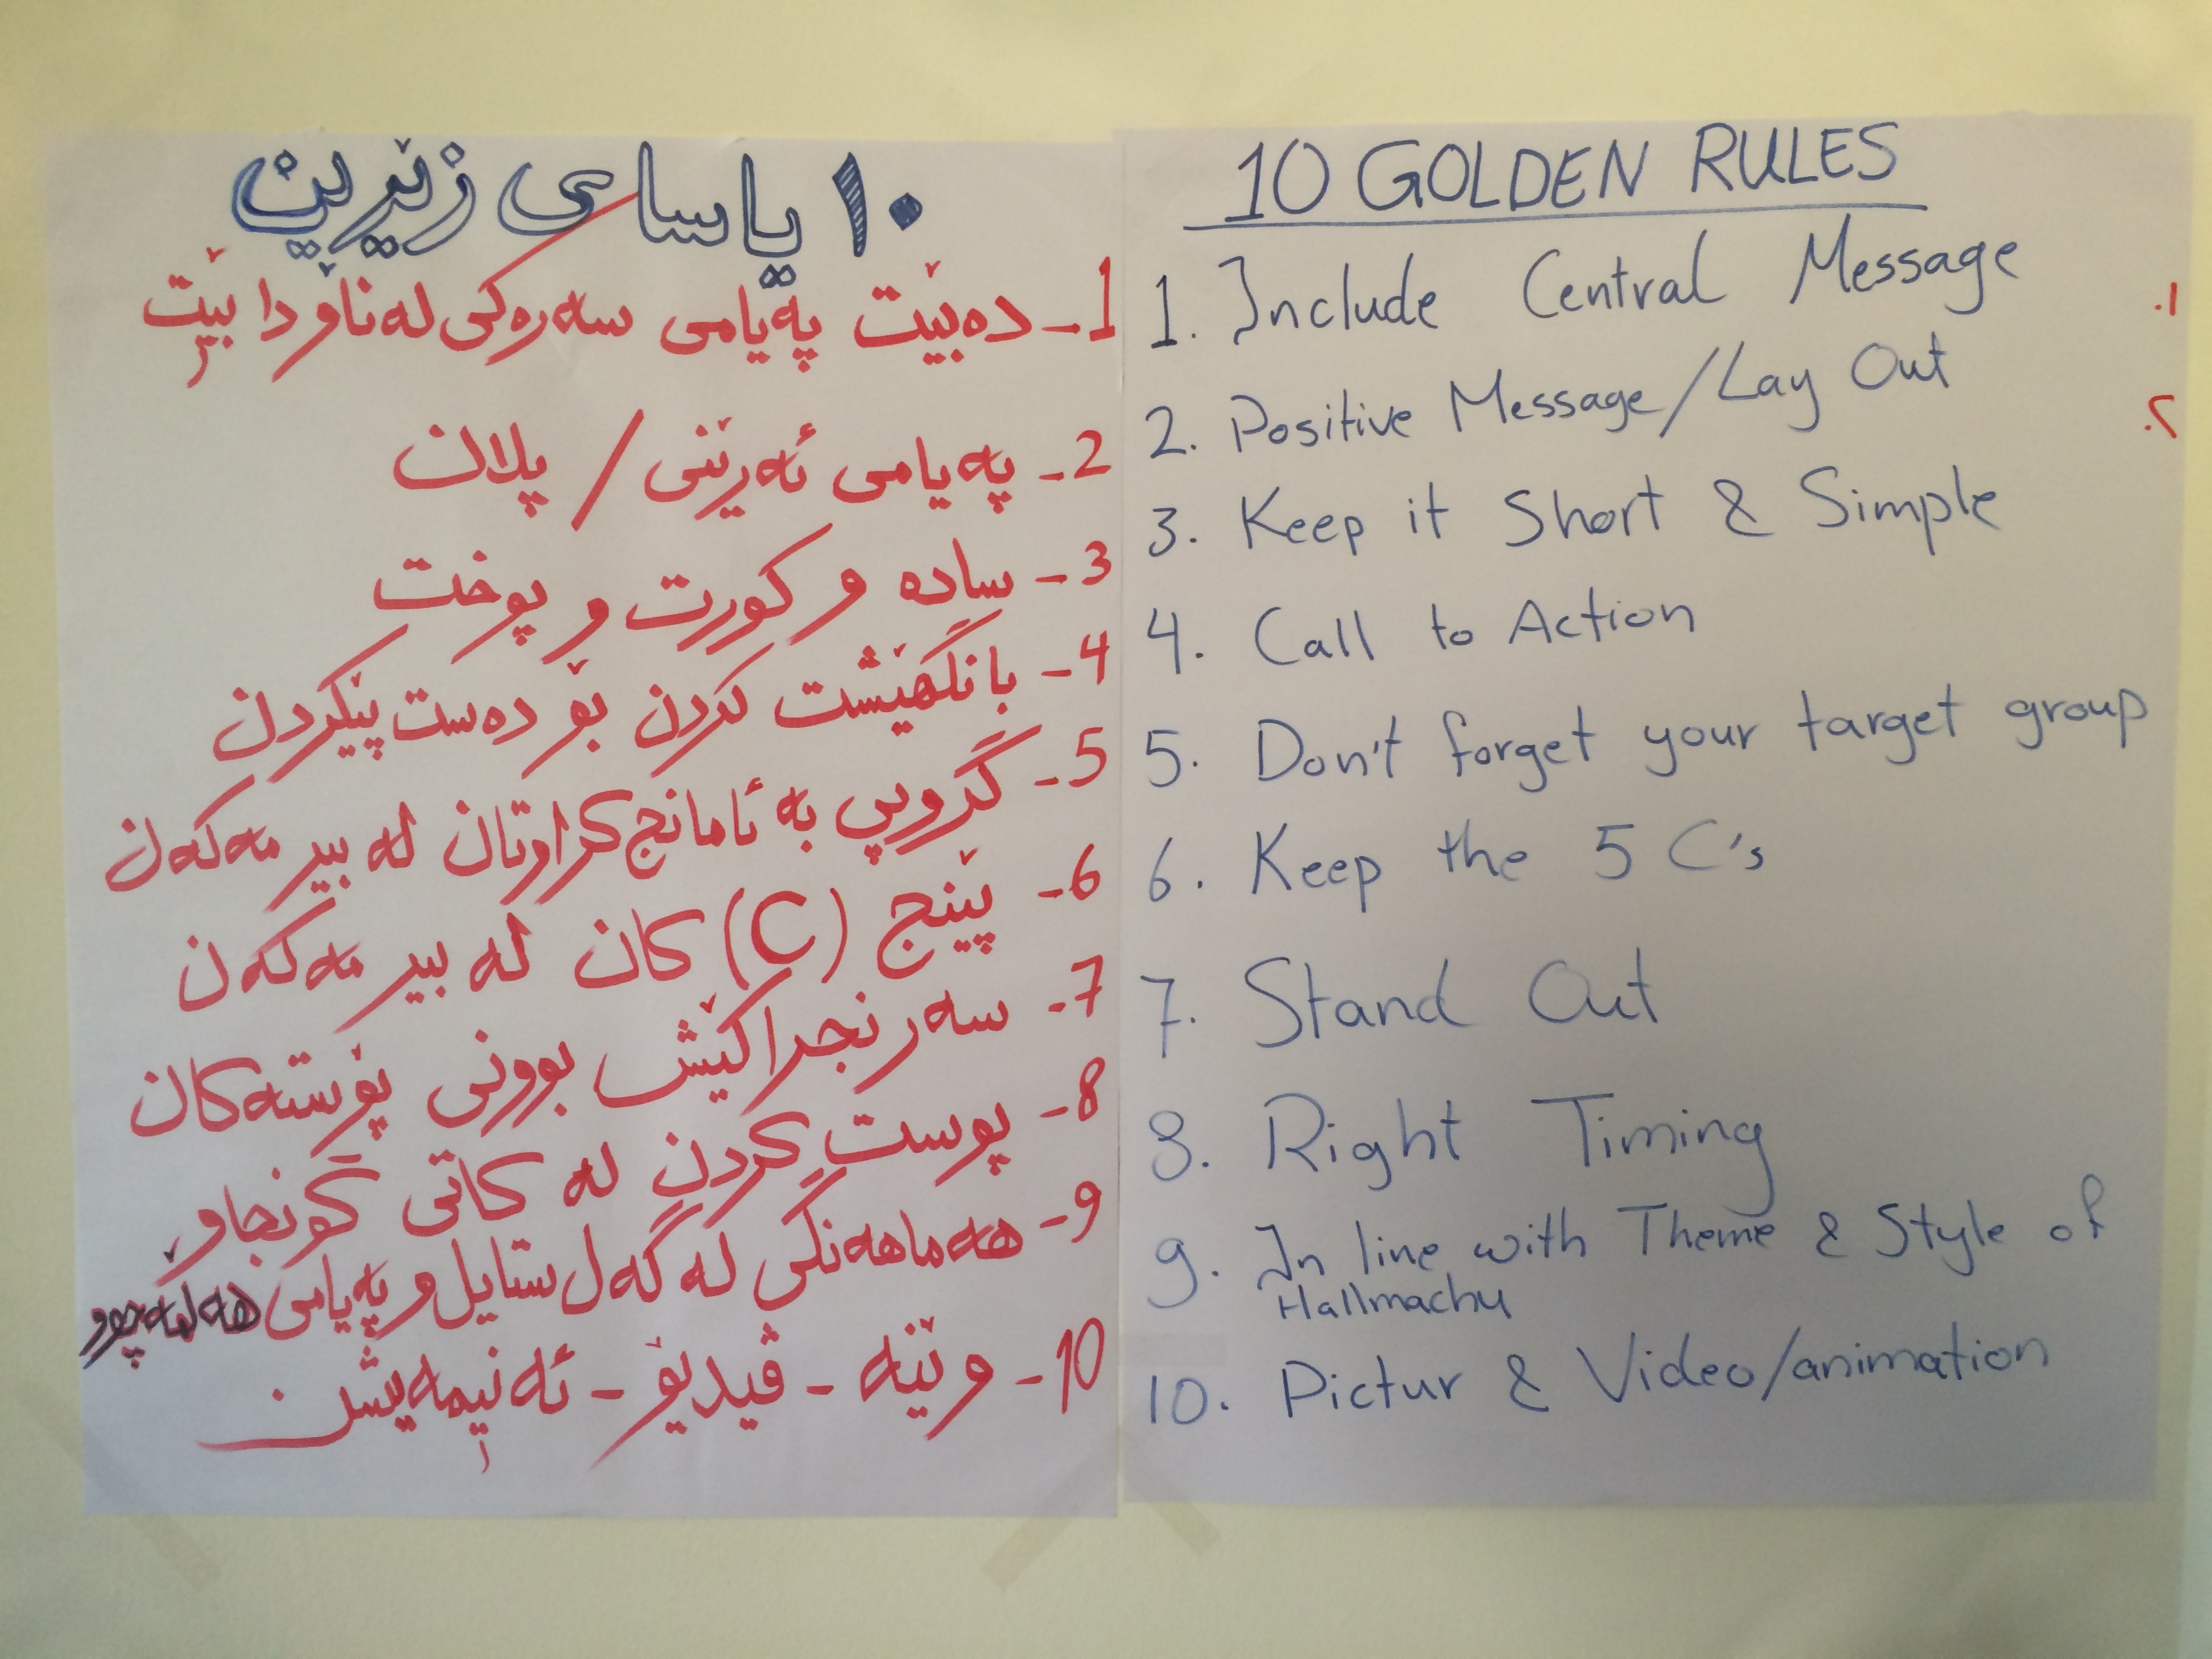 ١٠ یاسای زێڕین
1- دەبێت پەیامی سەرەکی لەناودا بێت
2- پەیامی ئەرێنی / پلان
3- سادە و کورت و پوخت
4- بانگهێشت کردن بۆ دەست پێکردن
5- گروپی بە ئامانج کراوتان لە بیر مەکەن
6- پێنج (C) کان لە بیر مەکەن
7- سەرنجراکێش بوونی پۆستەکان
8- پوست کردن لە کاتی گونجاو
9- هەماهەنگی لە گەل ستایل و پەیامی هەلمەچوو
10- وێنە - ڤیدیۆ - ئەنیمەیشن
10 GOLDEN RULES
1. Include Central Message
2. Positive Message/Lay Out
3. Keep it Short & Simple
4. Call to Action
5. Don't forget your target group
6. Keep the 5 C's
7. Stand Out
8. Right Timing
9. In line with Theme & Style of
Hallmachu
10. Pictur & Video/animation
.١
.٢